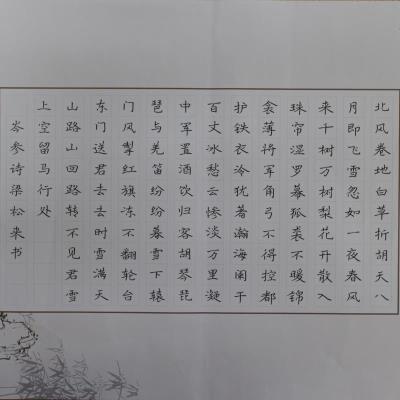 北风卷地白草折胡天八
月即飞雪忽如一夜春风
来千树万树梨花开散入
珠帘湿罗幕狐裘不暖锦
衾薄将军角弓不得控都
护铁衣冷犹著瀚海阑干
百丈冰愁云惨淡万里凝
中军置酒饮归客胡琴琵
琶与羌笛纷纷暮雪下辕
门风掣红旗冻不翻轮台
东门送君去去时雪满天
山路山回路转不见君雪
上空留马行处
岑参诗梁松来书